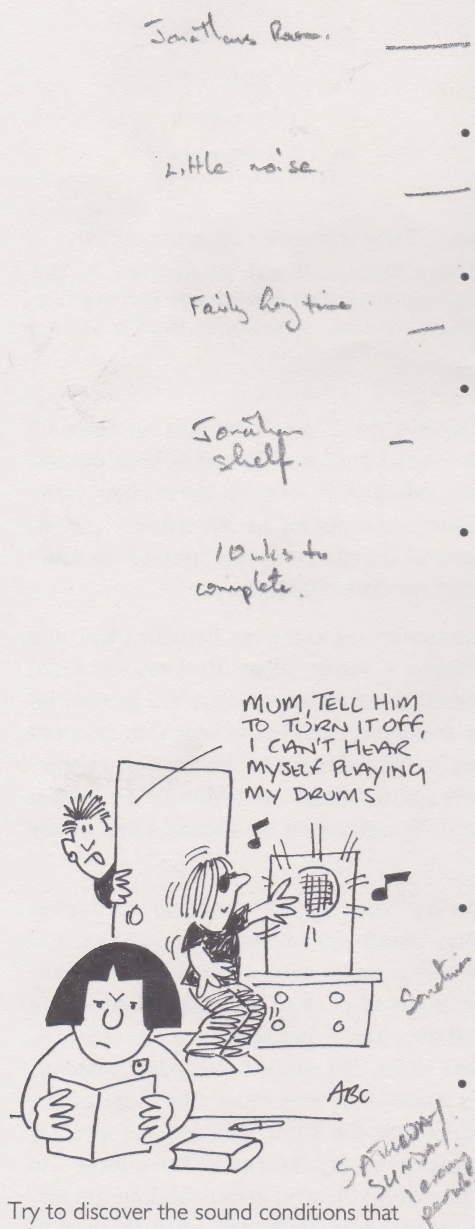 Jonathans Room.
Little noise
Fairly long time.
Jonathan
shelf.
10 wks to
complete.
MUM, TELL HIM
TO TURN IT OFF,
I CAN'T HEAR
MYSELF PLAYING
MY DRUMS
ABC
SATURDAY
SUNDAY.
Try to discover the sound conditions that